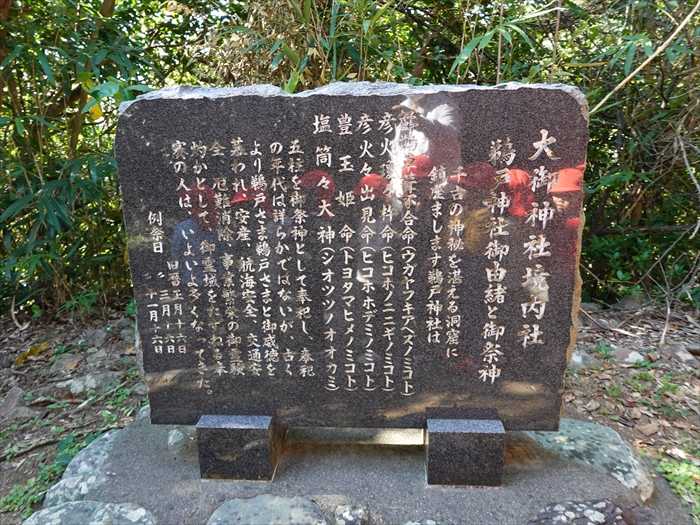 大御神社境内社
鵜戸神社御由緒と御祭神
千古の神秘を湛える洞窟に
鎮座まします鵜戸神社は
不合命(ウガヤフキアヘズノミコト)
彦火 杵命(ヒコホノニニギノミコト)
彦火々出見命(ヒコホホデミノミコト)
豊玉姫命(トヨタマヒメノミコト)
塩筒々大神(シオツツノオオカミ)
五柱を御祭神として奉祀し、奉祀
の年代は詳らかではないが、古く
より鵜戸さま鵜戸さまと御威徳を
慕われ、安産、航海安全、交通安
全、厄難消除、事業繁栄の御霊験
灼かとして、御霊域をたずねる参
の人は、いよいよ多くなってきた。
例祭日
旧暦正月十六日
三月十六日
十一月十六日